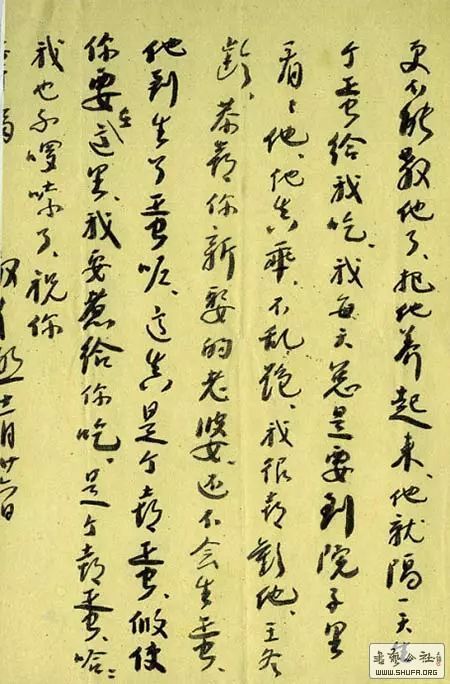 更不能殺他了、把他养起来、他就隔一天生
个蛋给我吃、我每天总是要到院子里
看看他、他真乖、不乱跑、我很喜歡他、王爷
歡、恭喜你新娶的老婆、还不会生蛋、
他到生了蛋呢、这真是个喜蛋、倘使
你要在这里、我要煮给你吃、是个喜蛋、哈哈
我也不啰嗦了、祝你
福
十二月廿六日
書藝公社
WWW.SHUFA.ORG